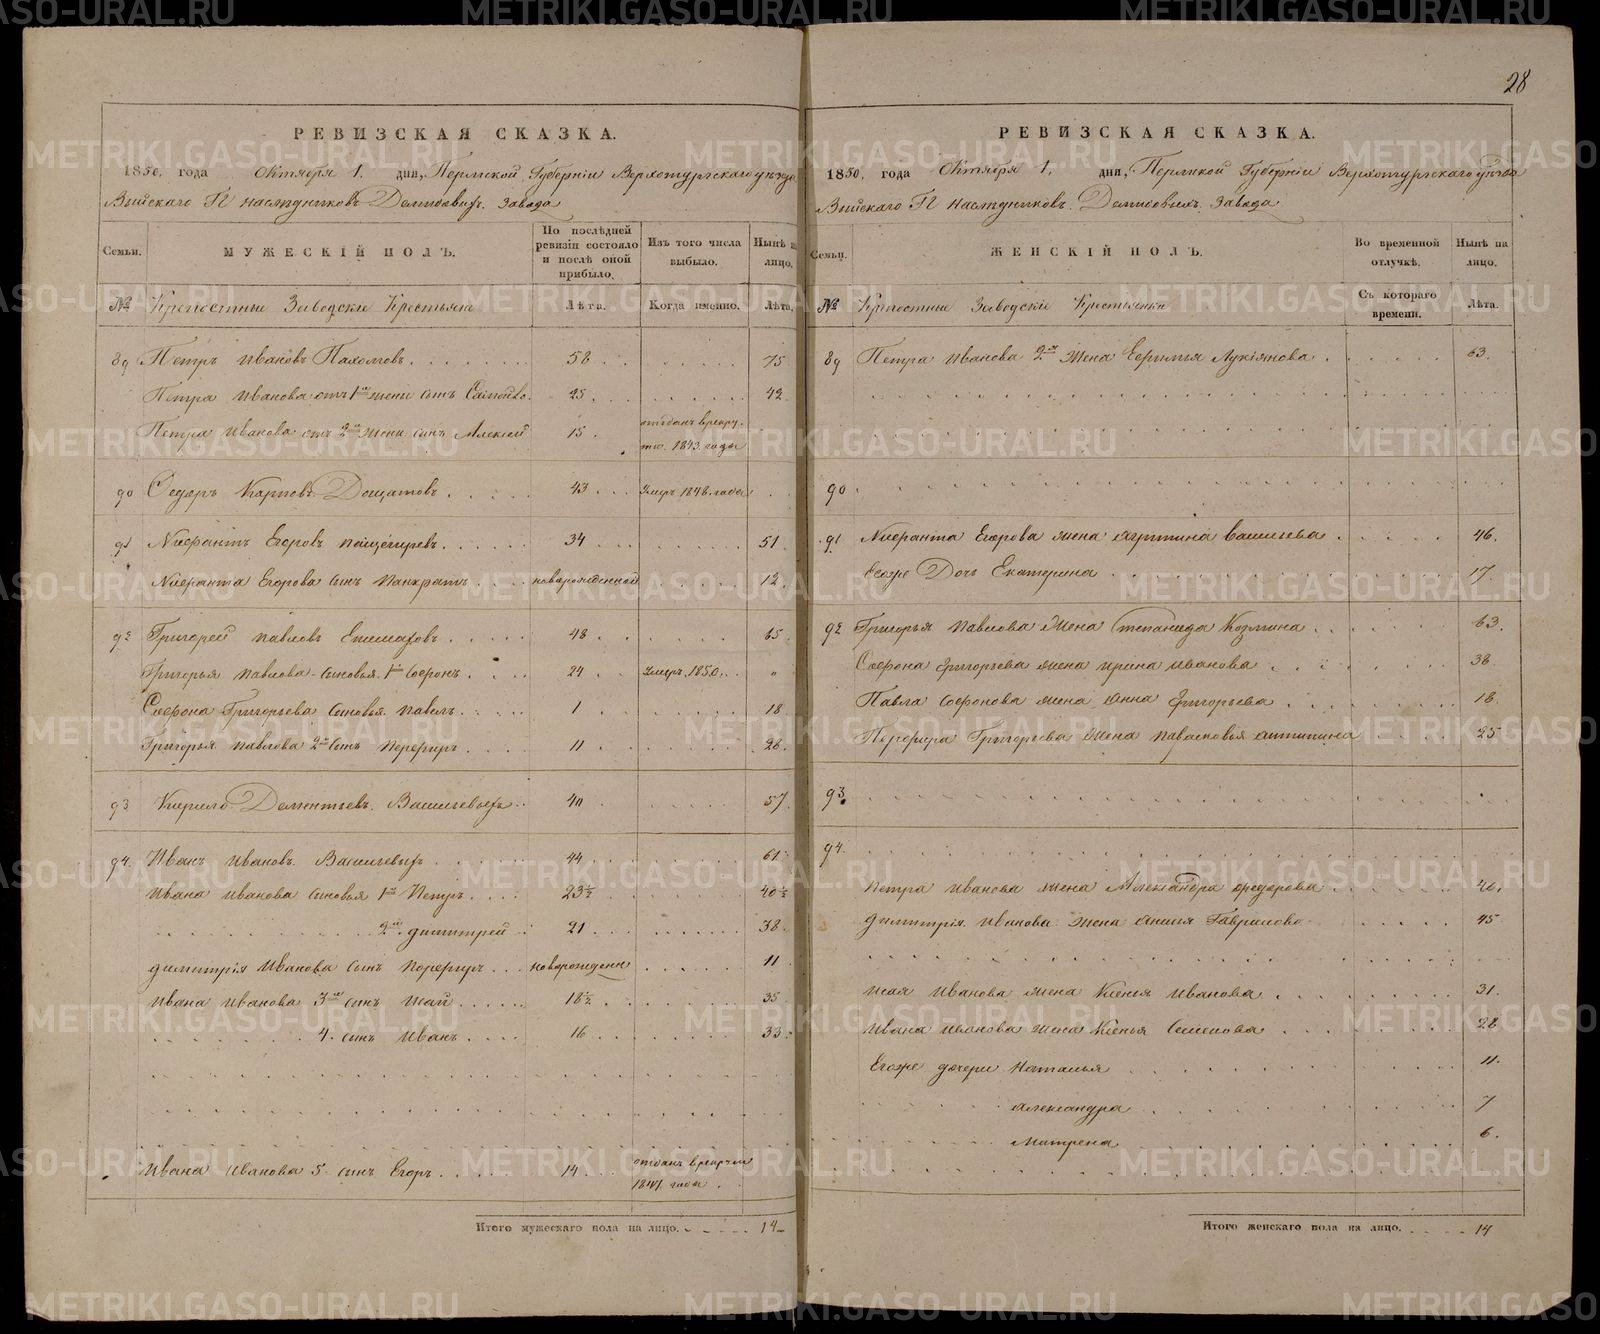 28
РЕВИЗСКАЯ СКАЗКА.
1850. года Октября 1. дня, Пермской Губерніи Верхотурскаго уѣзда
Выйскаго Гг наслѣдниковъ Демидовыхъ завода
Семьи.
МУЖЕСКІЙ ПОЛЪ.
По послѣдней ревизіи состояло и послѣ оной прибыло.
Изъ того числа выбыло.
Нынѣ на лицо.
№ Крѣпостные Заводскіе Крестьяне Лѣта. Когда именно. Лѣта.
89 Петръ Ивановъ Пахомовъ 58 75
Петра Иванова отъ 1й жены сынъ 25 42
Петра Иванова отъ 2й жены сынъ Алексѣй 15 отданъ в рекруты 1843 года
90 Ѳедоръ Карповъ Дощатовъ 43 Умеръ 1848 года
91 Никфантъ Егоровъ Пащегоревъ 34 51
Никфанта Егорова сынъ Панкратъ новорожденной 12
92 Григорей Павловъ 48 65
Григорья Павлова сыновья 1й Софронъ 24 Умеръ 1850 "
Софрона Григорьева сыновья Павелъ 1 18
Григорья Павлова 2й сынъ Порфиръ 11 28
93 Кирило Дементьевъ Васильевыхъ 40 57
94. Иванъ Ивановъ Васильевыхъ 44 61
Ивана Иванова сыновья 1й Петръ 23½ 40½
2й Димитрей 21 38
Димитрія Иванова сынъ Порфиръ новорожденн 11
Ивана Иванова 3й сынъ Исай 18½ 35
4. сынъ Иванъ 16 33
Ивана Иванова 5. сынъ Егоръ 14 отданъ в рекруты 1841 года
Итого мужескаго пола на лицо. 14
РЕВИЗСКАЯ СКАЗКА.
1850. года Октября 1. дня, Пермской Губерніи Верхотурскаго уѣзда
Выйскаго Гг наслѣдниковъ Демидовыхъ завода
Семьи.
ЖЕНСКІЙ ПОЛЪ.
Во временной отлучкѣ.
Нынѣ на лицо.
№ Крѣпостные Заводскіе Крестьянки Съ котораго времени. Лѣта.
89 Петра Иванова 2я жена Ефимья Лукіянова 63
90
91 Никфанта Егорова жена Агрипина Васильева 46.
Егоже Дочь Екатерина 17
92 Григорья Павлова жена Степанида Козмина 63
Софрона Григорьева жена Ирина Иванова 38
Павла Софронова жена Анна Григорьева 18
Порфира Григорьева жена Антипина 25
93
94.
Петра Иванова жена Александра Федорова 46.
Димитрія Иванова жена Гаврилова 45
Исая Иванова жена Ксенья Иванова 31
Ивана Иванова жена Ксенья Семенова 28
Егоже дочери Наталья 11.
Александра 7
Матрена 6.
Итого женскаго пола на лицо. 14
METRIKI.GASO-URAL.RU